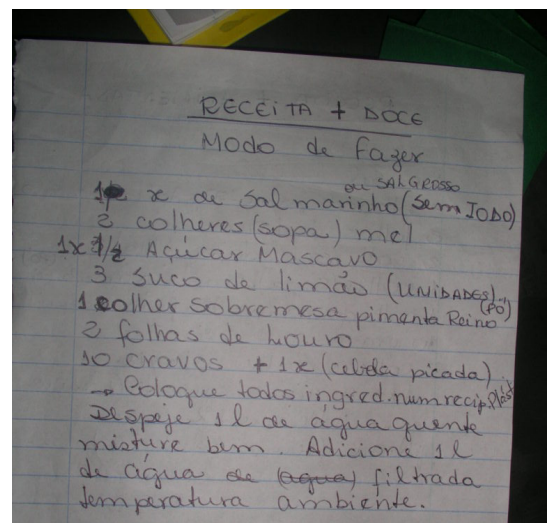 RECEITA + DOCE
Modo de Fazer
ou SAL GROSSO
1 x de Sal marinho (Sem IODO)
2 colheres (sopa) mel
1x 1/2 Açúcar Mascavo
3 suco de limão (UNIDADES)
(PÓ)
1 colher sobremesa pimenta Reino
2 folhas de Louro
10 cravos + 1x (cebola picada)
→ Coloque todos ingred. num recip. Plást
Despeje 1l de água quente
misture bem. Adicione 1l
de água de (agua) filtrada
temperatura ambiente.